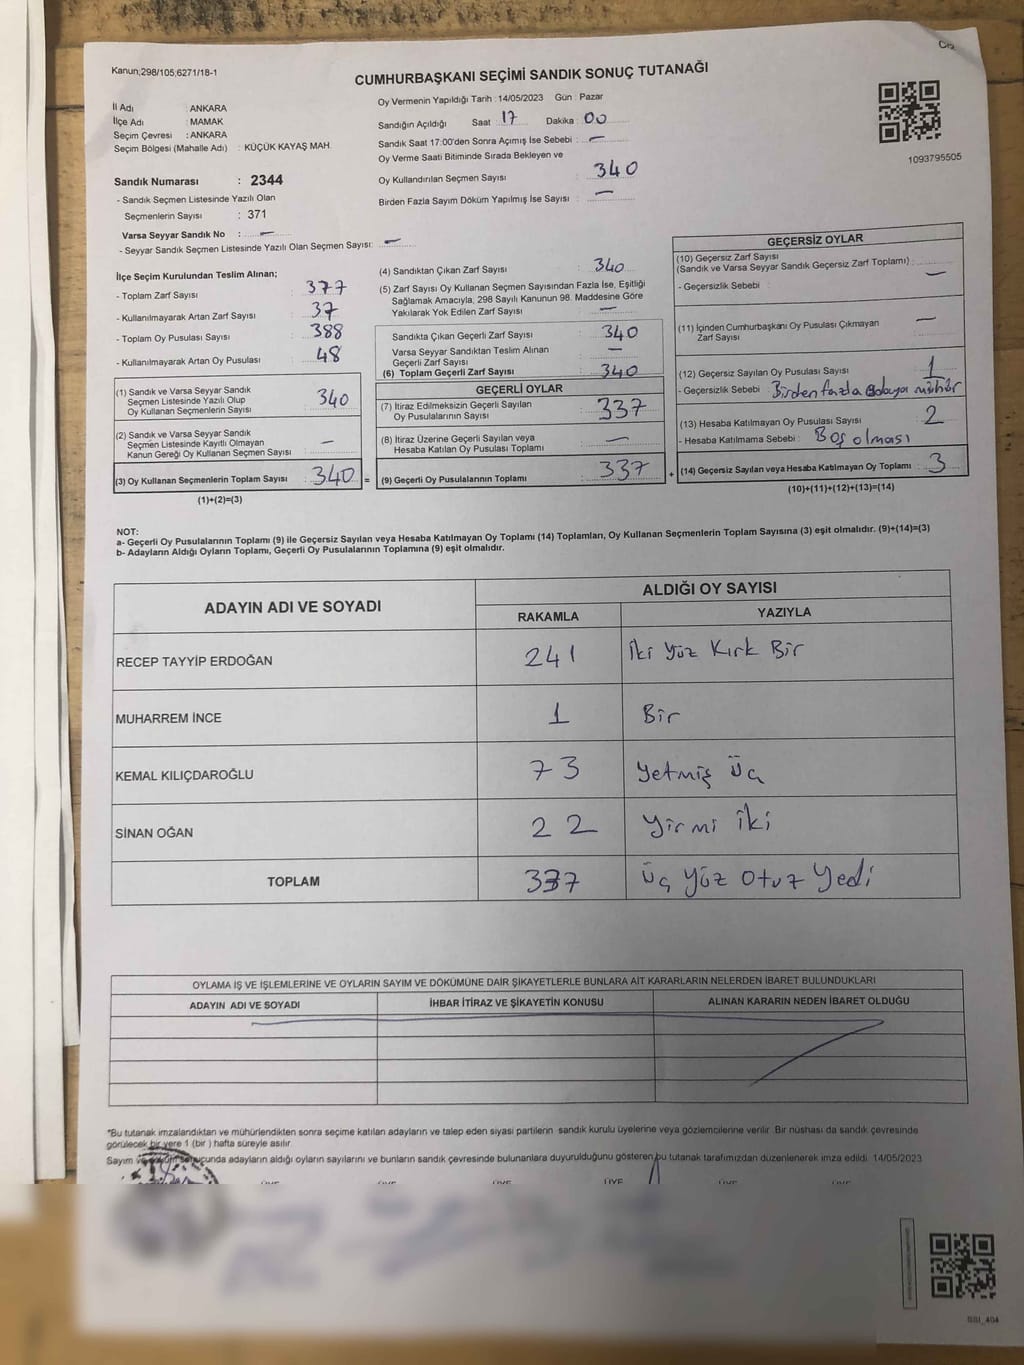 Kanun;298/105;6271/18-1
CUMHURBAŞKANI SEÇİMİ SANDIK SONUÇ TUTANAĞI
İl Adı : ANKARA
İlçe Adı : MAMAK
Seçim Çevresi : ANKARA
Seçim Bölgesi (Mahalle Adı) : KÜÇÜK KAYAŞ MAH.
Sandık Numarası : 2344
- Sandık Seçmen Listesinde Yazılı Olan
Seçmenlerin Sayısı : 371
Varsa Seyyar Sandık No : —
- Seyyar Sandık Seçmen Listesinde Yazılı Olan Seçmen Sayısı: —
Oy Vermenin Yapıldığı Tarih : 14/05/2023 Gün : Pazar
Sandığın Açıldığı Saat : 17 Dakika : 00
Sandık Saat 17:00'den Sonra Açımış İse Sebebi : —
Oy Verme Saati Bitiminde Sırada Bekleyen ve
Oy Kullandırılan Seçmen Sayısı : 340
Birden Fazla Sayım Döküm Yapılmış İse Sayısı : —
1093795505
İlçe Seçim Kurulundan Teslim Alınan;
- Toplam Zarf Sayısı : 377
- Kullanılmayarak Artan Zarf Sayısı : 37
- Toplam Oy Pusulası Sayısı : 388
- Kullanılmayarak Artan Oy Pusulası : 48
(1) Sandık ve Varsa Seyyar Sandık
Seçmen Listesinde Yazılı Olup
Oy Kullanan Seçmenlerin Sayısı : 340
(2) Sandık ve Varsa Seyyar Sandık
Seçmen Listesinde Kayıtlı Olmayan
Kanun Gereği Oy Kullanan Seçmen Sayısı : —
(3) Oy Kullanan Seçmenlerin Toplam Sayısı : 340 =
(1)+(2)=(3)
(4) Sandıktan Çıkan Zarf Sayısı : 340
(5) Zarf Sayısı Oy Kullanan Seçmen Sayısından Fazla İse, Eşitliği
Sağlamak Amacıyla, 298 Sayılı Kanunun 98. Maddesine Göre
Yakılarak Yok Edilen Zarf Sayısı : —
Sandıkta Çıkan Geçerli Zarf Sayısı : 340
Varsa Seyyar Sandıktan Teslim Alınan
Geçerli Zarf Sayısı : —
(6) Toplam Geçerli Zarf Sayısı : 340
GEÇERLİ OYLAR
(7) İtiraz Edilmeksizin Geçerli Sayılan
Oy Pusulalarının Sayısı : 337
(8) İtiraz Üzerine Geçerli Sayılan veya
Hesaba Katılan Oy Pusulası Toplamı : —
(9) Geçerli Oy Pusulalarının Toplamı : 337 +
GEÇERSİZ OYLAR
(10) Geçersiz Zarf Sayısı
(Sandık ve Varsa Seyyar Sandık Geçersiz Zarf Toplamı) : —
- Geçersizlik Sebebi :
(11) İçinden Cumhurbaşkanı Oy Pusulası Çıkmayan
Zarf Sayısı : —
(12) Geçersiz Sayılan Oy Pusulası Sayısı : 1
- Geçersizlik Sebebi : Birden fazla mühür
(13) Hesaba Katılmayan Oy Pusulası Sayısı : 2
- Hesaba Katılmama Sebebi : Boş olması
(14) Geçersiz Sayılan veya Hesaba Katılmayan Oy Toplamı : 3
(10)+(11)+(12)+(13)=(14)
NOT:
a- Geçerli Oy Pusulalarının Toplamı (9) ile Geçersiz Sayılan veya Hesaba Katılmayan Oy Toplamı (14) Toplamları, Oy Kullanan Seçmenlerin Toplam Sayısına (3) eşit olmalıdır. (9)+(14)=(3)
b- Adayların Aldığı Oyların Toplamı, Geçerli Oy Pusulalarının Toplamına (9) eşit olmalıdır.
ADAYIN ADI VE SOYADI
ALDIĞI OY SAYISI
RAKAMLA YAZIYLA
RECEP TAYYİP ERDOĞAN 241 İki Yüz Kırk Bir
MUHARREM İNCE 1 Bir
KEMAL KILIÇDAROĞLU 73 Yetmiş Üç
SİNAN OĞAN 22 Yirmi İki
TOPLAM 337 Üç Yüz Otuz Yedi
OYLAMA İŞ VE İŞLEMLERİNE VE OYLARIN SAYIM VE DÖKÜMÜNE DAİR ŞİKAYETLERLE BUNLARA AİT KARARLARIN NELERDEN İBARET BULUNDUKLARI
ADAYIN ADI VE SOYADI İHBAR İTİRAZ VE ŞİKAYETİN KONUSU ALINAN KARARIN NEDEN İBARET OLDUĞU
*Bu tutanak imzalandıktan ve mühürlendikten sonra seçime katılan adayların ve talep eden siyasi partilerin sandık kurulu üyelerine veya gözlemcilerine verilir. Bir nüshası da sandık çevresinde
görülecek bir yere 1 (bir ) hafta süreyle asılır.
Sayım ve sonucunda adayların aldığı oyların sayılarını ve bunların sandık çevresinde bulunanlara duyurulduğunu gösteren bu tutanak tarafımızdan düzenlenerek imza edildi. 14/05/2023
ÜYE ÜYE ÜYE ÜYE ÜYE ÜYE